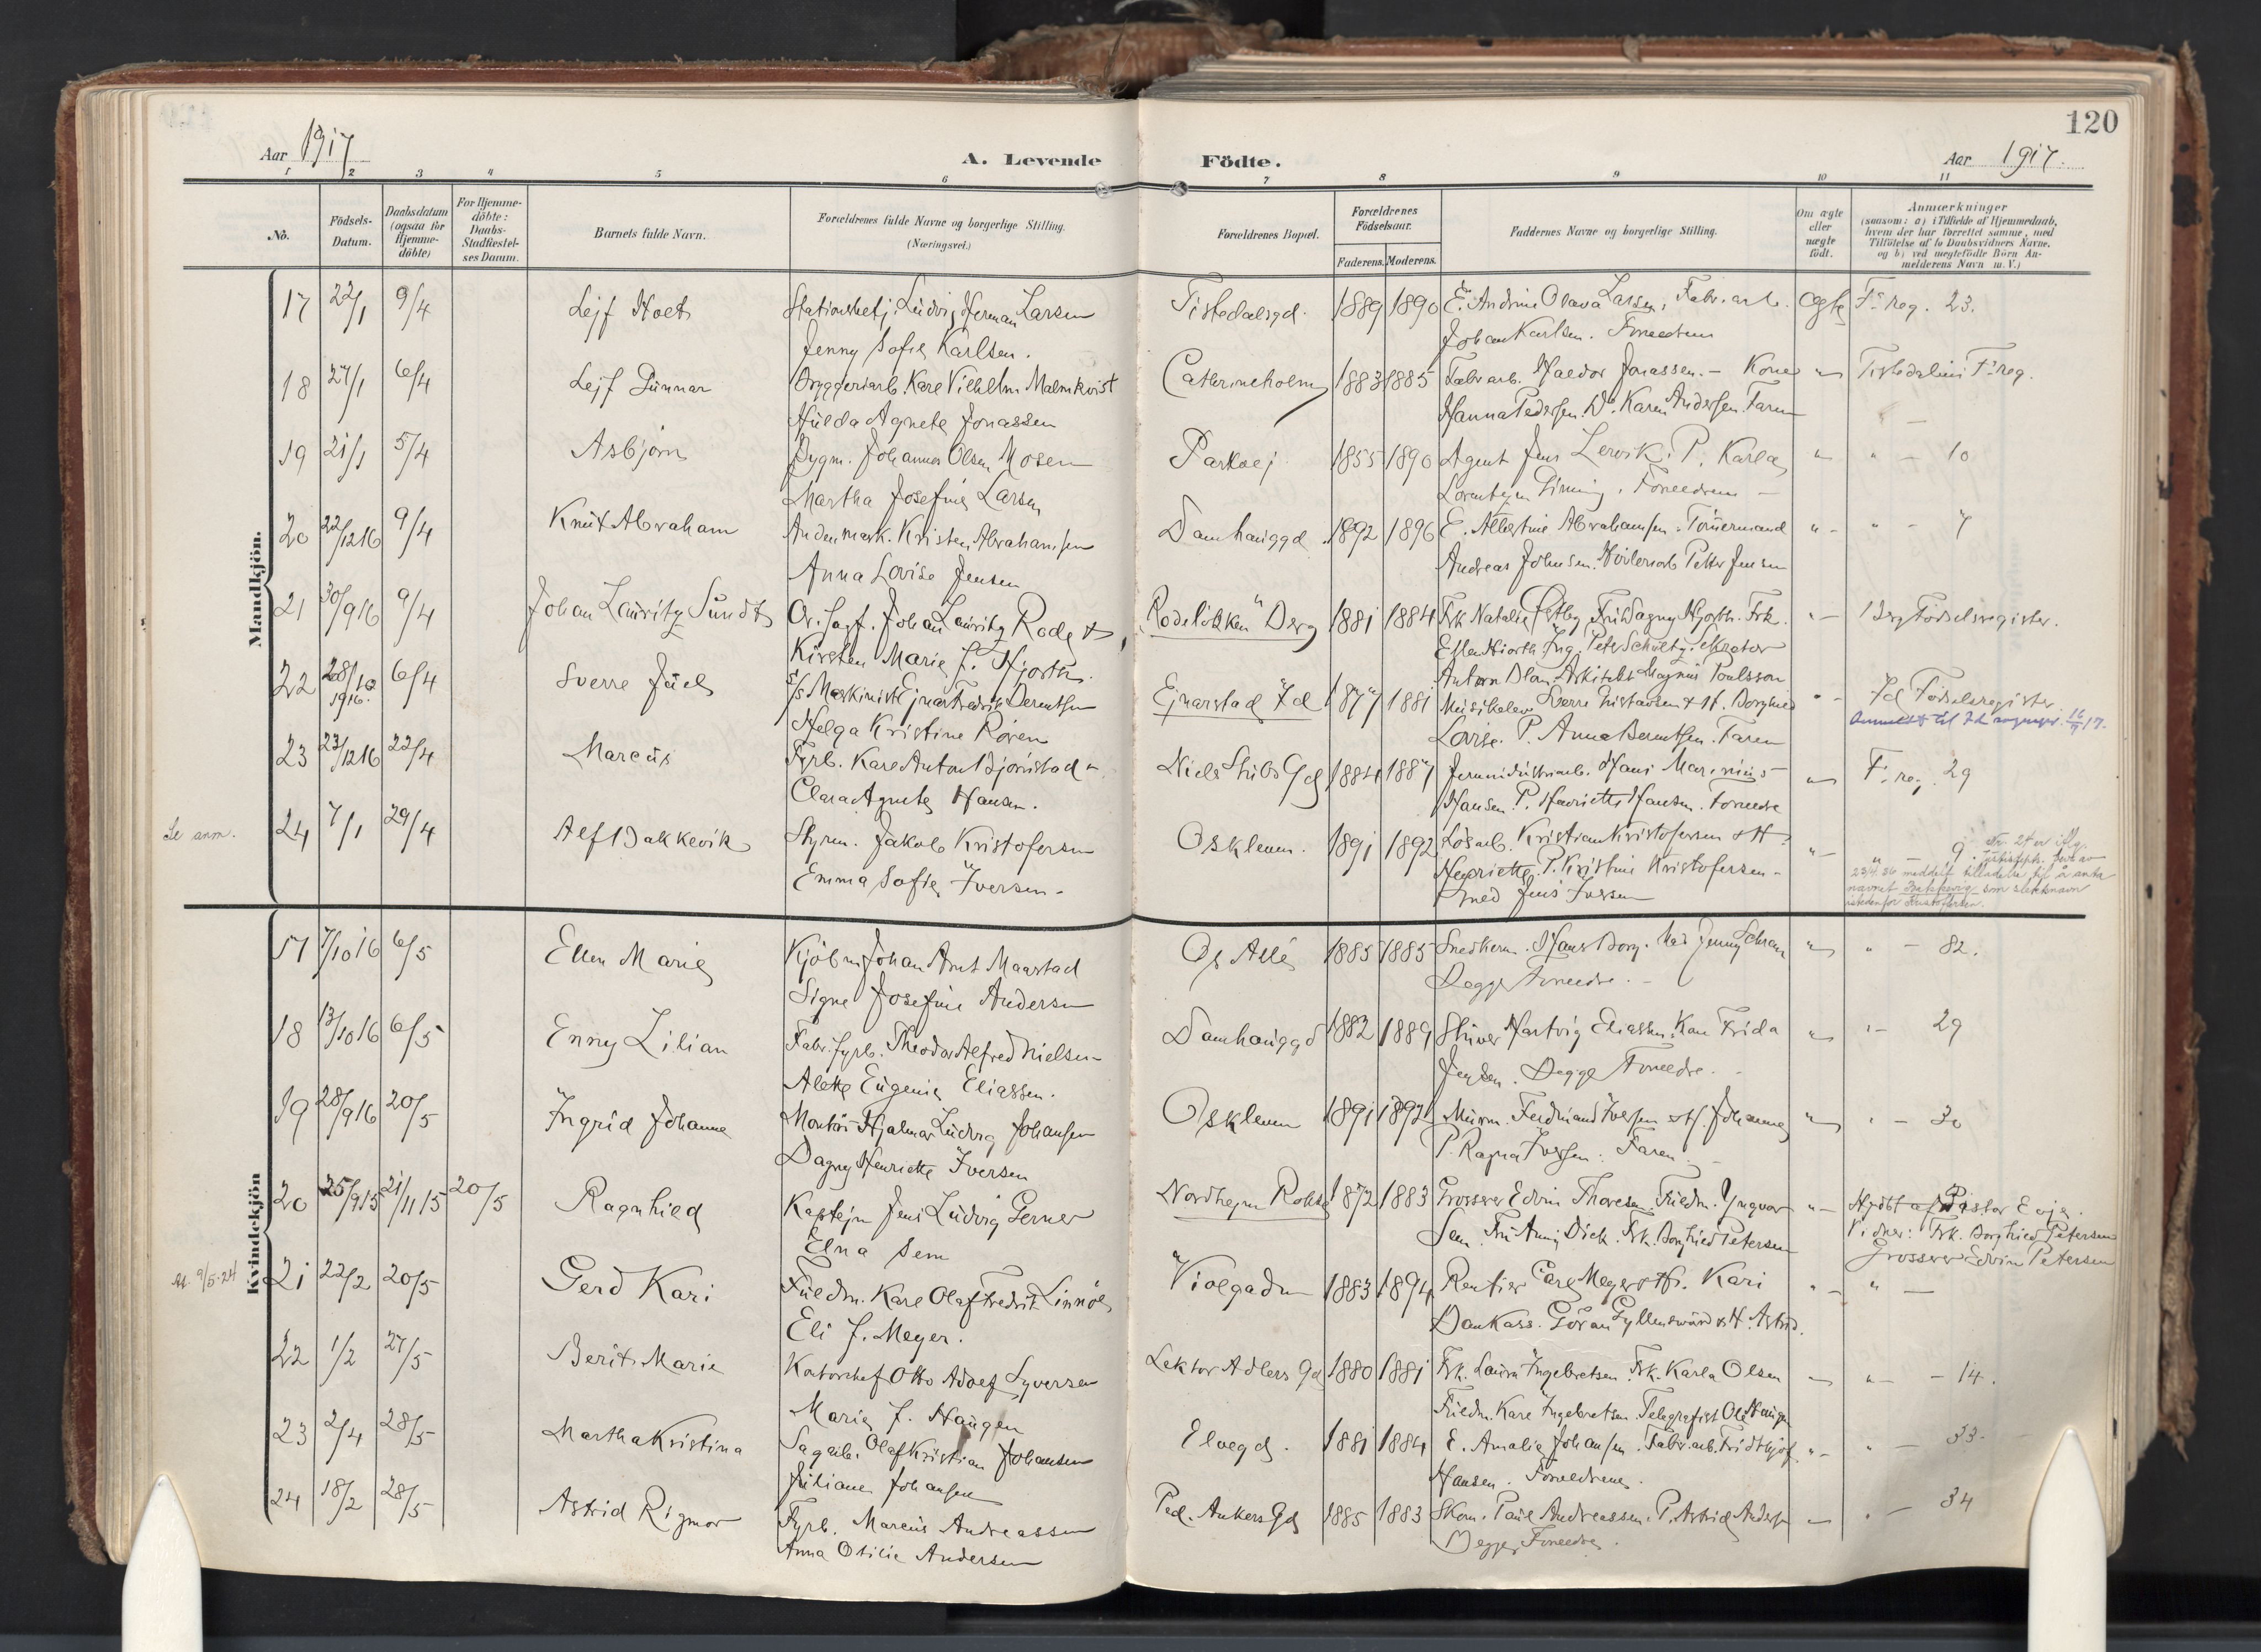 120
Aar 1917
A. Levende Födte.
Aar 1917.
1 2 3 4 5 6 7 8 9 10 11
No.
Födsels-
Datum.
Daabsdatum
(ogsaa for
Hjemme-
döbte)
For Hjemme-
döbte:
Daabs-
Stadfæstel-
ses Datum.
Barnets fulde Navn.
Forældrenes fulde Navne og borgerlige Stilling.
(Næringsvei.)
Forældrenes Bopæl.
Forældrenes
Födselsaar.
Faderens. Moderens.
Faddernes Navne og borgerlige Stilling.
Om ægte
eller
uægte
födt.
Anmærkninger
(saasom: a) i Tilfælde af Hjemmedaab,
hvem der har forrettet samme, med
Tilföielse af to Daabsvidners Navne.
og b) ved uægtefödte Börn An-
melderens Navn m. V.)
Mandkjön.
17 22/1 9/4 Lejf Stationsbetj. Ludvig Herman Larsen Tistedalsgd. 1889 1890 E. Andrine Olava Larsen, Fabr. arb. Ægte F. reg. 23.
Jenny Sofie Karlsen. Johan Karlsen. Forældrene
18 27/1 6/4 Lejf Gunnar Bryggeriarb. Karl Vilhelm Malmkvist Cathrineholm 1883 1885 Fabr arb. Haldor Jonassen. - Kone Tistedalens F. reg.
Hulda Agnete Jonassen Hanna Pedersen. D. Karen Andersen. Faren
19 21/1 5/4 Asbjørn Bygm. Johannes Olsen Mosen Parkvej 1855 1890 Agent Jens Lervik. P. Karla " - 10
Martha Josefine Larsen Forældrene -
20 22/12 16 9/4 Knut Abraham Andenmask. Kristen Abrahamsen Damhauggd. 1892 1896 E. Albertine Abrahamsen. Tømmermand " - " - 7
Anna Lovise Jensen Andreas Johnsen. Petter Jensen
21 30/9 16 9/4 Johan Lauritz Sundt Or. Sagf. Johan Lauritz Rode & "Rodeløkken" Berg 1881 1884 Frk Natalie Østby Fru Dagny Hjorth. Frk. " - Berg Fødselsregister.
Kirsten Marie f. Hjorth. Ellen Hiorth. Ing. Peter Schultz. Sekretær
Anton Blom. Arkitekt Magnus Poulsson
22 28/10 1916. 6/4 Sverre Juel E/s Maskinist Ejnar Fredrik Berntsen Ejnarstad Id 1877 1881 Musikelev Sverre Gustavsen & H. Borghild " - Id Fødselsregister
Helga Kristine Røren Lovise. P. Anna Berntsen. Faren
23 23/12 16 22/4 Marcus Fyrb. Karl Anton Bjørnstad Niels Stubs Gd 1884 1887 Jernindustriarb. Hans Marinius F. reg. 29
Clara Agnete Hansen. Hansen. P. Henriette Hansen. Forældre
Se anm. 24 7/1 29/4 Alf Bakkevik Styrm. Jakob Kristofersen Oskleven. 1891 1892 Løsarb. Kristian Kristofersen & H. " - " - 9. Nr. 24 er iflg.
Emma Sofie Iversen. Henriette. P. Kristine Kristofersen -
23/4 26 meddelt tilladelse til å anta
navnet Bakkevig som slektsnavn
istedenfor Kristofersen.
Kvindekjön
17 7/10 16 6/5 Ellen Marie Kjøbm. Johan Arnt Maarstad Os Allé 1885 1885 Snedkerm. Hans Borg. Mad. Jenny " - 82.
Signe Josefine Andersen Begge Forældre. -
18 13/10 16 6/5 Enny Lilian Fabr. fyrb. Theodor Alfred Nielsen Damhauggd 1882 1889 Stuver Hartvig Eliassen. Kone Frida " - 29
Alette Eugenie Eliassen. Jensen. Begge Forældre.
19 28/9 16 20/5 Ingrid Johanne Montør Hjalmar Ludvig Johansen Oskleven 1891 1892 Murm. Ferdinand Iversen & H. Johanne " - 30
Dagny Henriette Iversen P. Ragna Iversen. Faren. -
20 25/9 15 21/11 15 20/5 Ragnhild Kaptejn Jens Ludvig Gerner Nordhejm Rokke 1872 1883 Grosserer Edvin Thoresen. Fuldm. Yngvar " - Hjdøbt af Pastor Evje.
Elna Sem Sem. Fru Anny Dick. Frk. Borghild Petersen Vidner: Frk. Borghild Petersen
Grosserer Edvin Petersen
9/5-24 21 22/2 20/5 Gerd Kari Fuldm. Karl Olaf Fredrik Linnøe Violgaden 1883 1894 Rentier Carl Meyer & H. Kari " -
Eli f. Meyer. Bankass. Göran Gyllensvärd & H. Astrid.
22 1/2 27/5 Berit Marie Kontorchef Otto Adolf Syversen Lektor Adlers Gd 1880 1881 Frk. Laura Ingebretsen. Frk. Karla Olsen " - 14.
Marie f. Haugen Fuldm. Karl Ingebretsen. Telegrafist Ole Haugen
23 2/4 28/5 Martha Kristina Sagarb. Olaf Kristian Johansen Elvegd. 1881 1884 E. Amalie Johansen. Fabr. arb. Fridthjof " - " - 33-
Juliane Johansen Hansen. Forældrene.
24 18/2 28/5 Astrid Rigmor Fyrb. Marcus Andreassen Ped. Ankers Gd 1885 1883 Skom. Paul Andreassen. P. Astrid Andersen " - 34
Anna Otilie Andersen Begge Forældre.